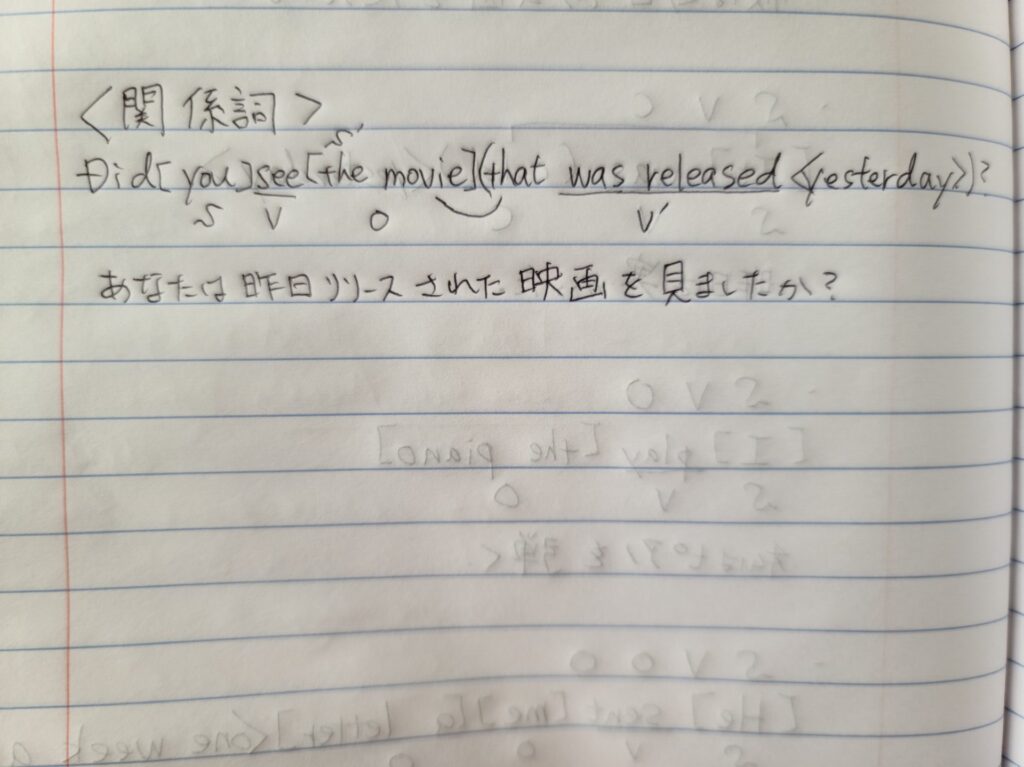 <関係詞>
S'
Did[you]see[the movie](that was released <yesterday>)?
S V O V'
あなたは昨日リリースされた映画を見ましたか?